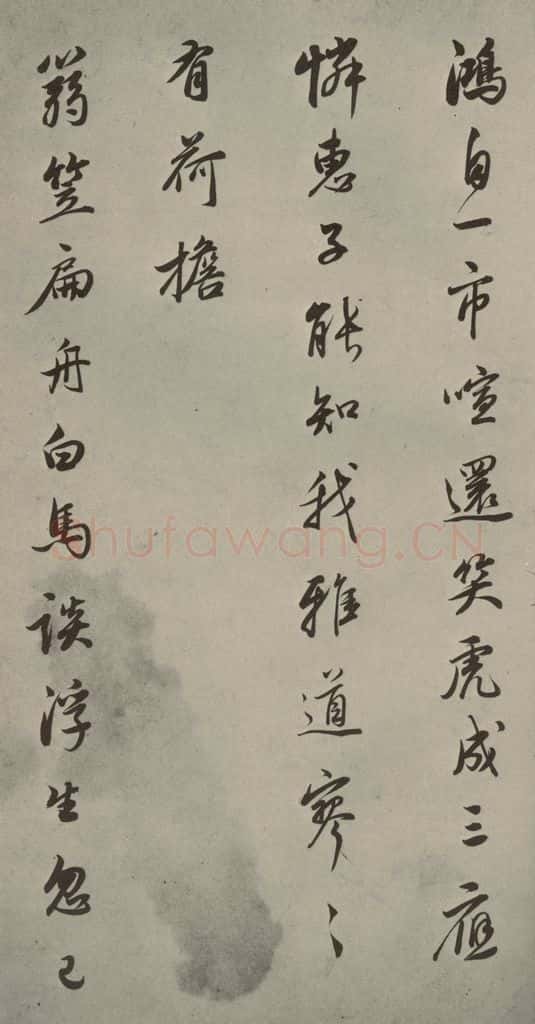 鴻自一市喧還笑虎成三應
憐惠子能知我雅道寥〻
有荷擔
蒻笠扁舟白馬談浮生忽已
shufawang.CN